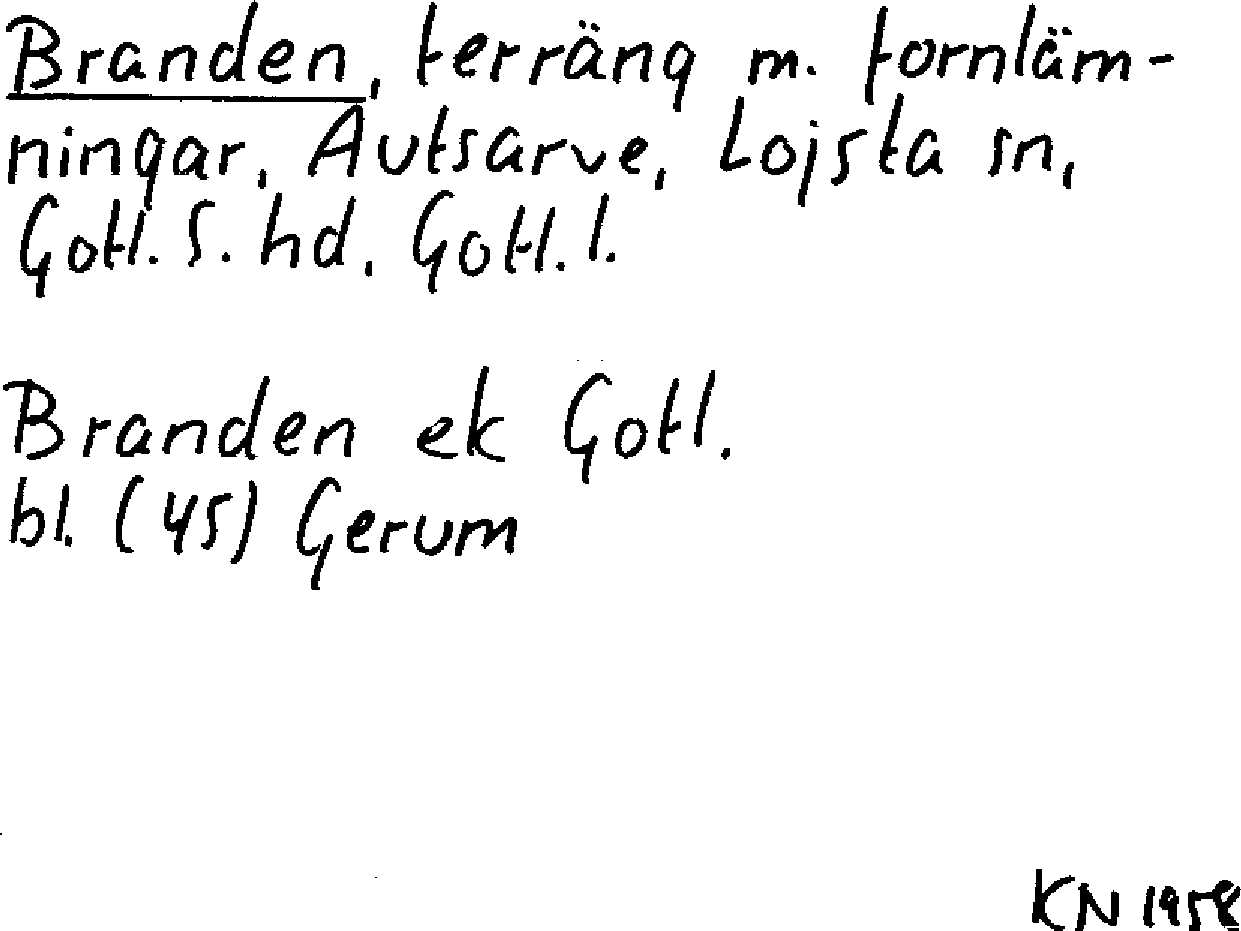 Branden, terräng m. fornläm-
ningar, Autsarve, Lojsta sn,
Gotl. S. hd, Gotl. l.
Branden ek Gotl.
bl. (45) Gerum
KN 1958